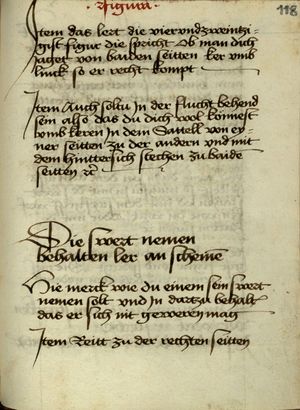 figura
118
Item das lert die vierundzweintzi-
gist figur die spricht Ob man dich
Jaget von baiden seitten ker vmb
linck so er recht kompt
Item Auch soltu In der flucht behend
sein also das du dich wol konnest
vmb keren In dem Sattell von ey-
ner seitten zu der andern vnd mit
dem hinttersich stechen zu baide
seitten etc
Die swert nemen
behalten ler an scheme
Hie merck wie du einem sein swert
nemen solt vnd In dartzu behalt
das er sich nit geweren mag
Item Reitt zu der rechten seitten